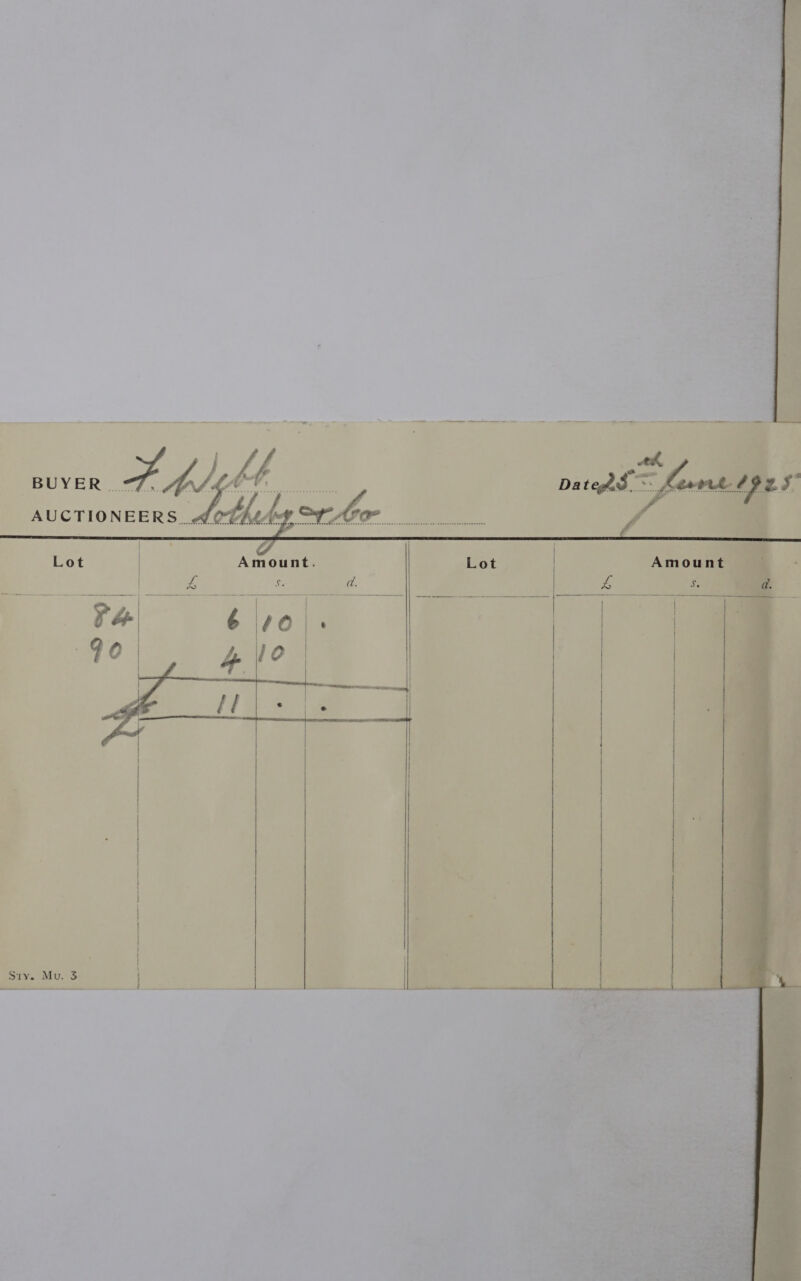 BUYER F.
Dated 25th June 1925
AUCTIONEERS Sotheby & Co
Lot Amount. Lot Amount
£ s. d. £ s. d.
84 6 10 .
90 4 10
£ 11 . .
Sty. Mu. 3